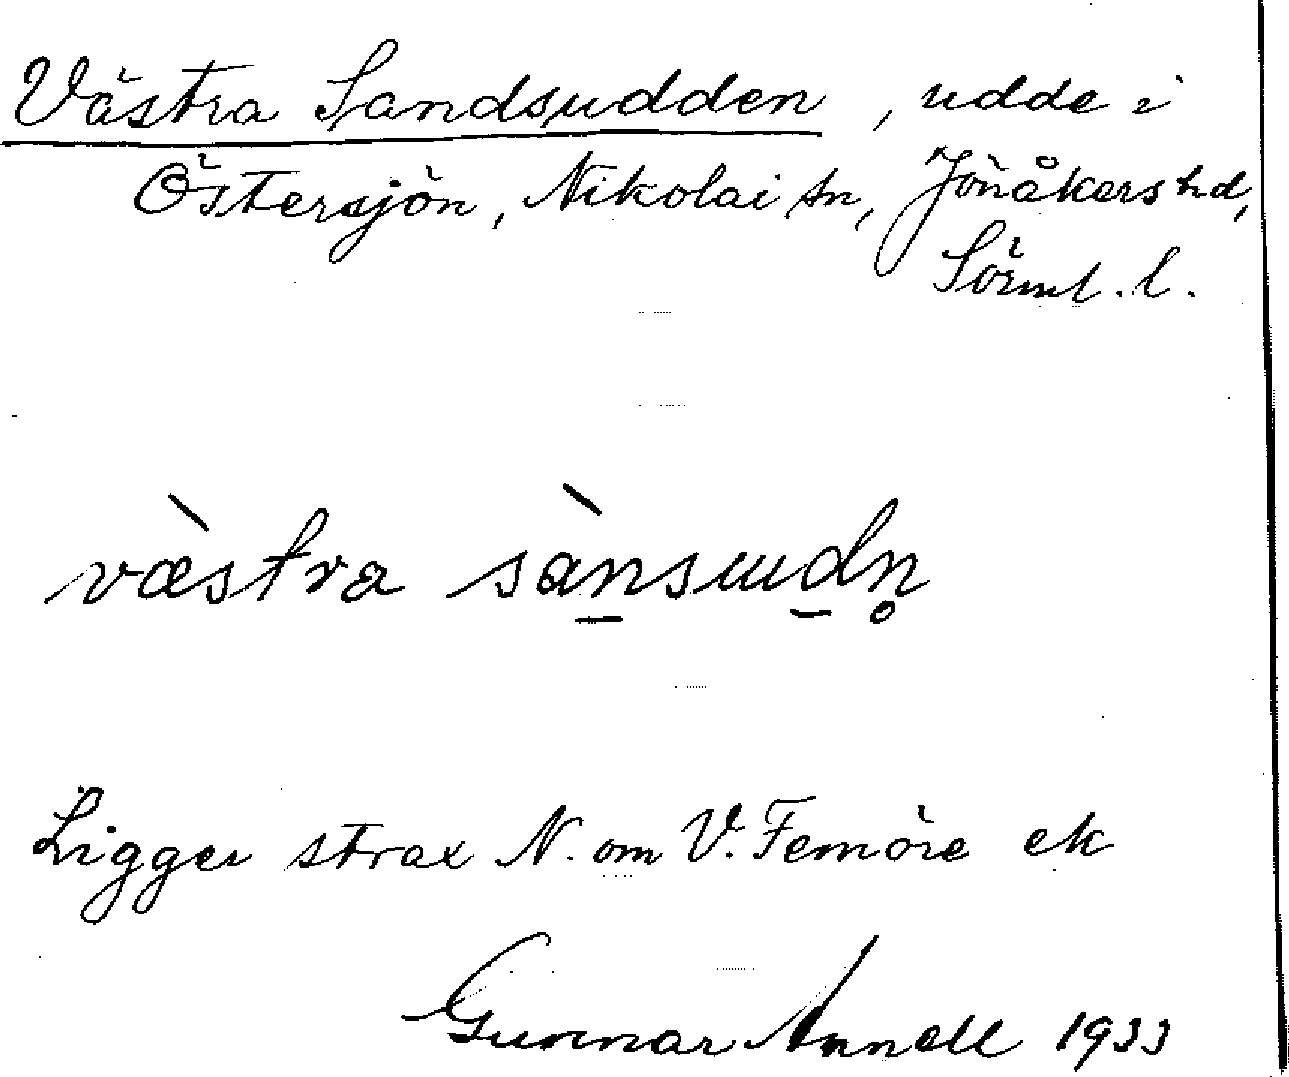 Västra Sandsudden, udde i
Östersjön, Nikolai sn, Jönåkers hd,
Sörml. l.
væ̀stra sàn̠sɯd̠n̥
Ligger strax N. om V. Femöre ek
Gunnar Annell 1933